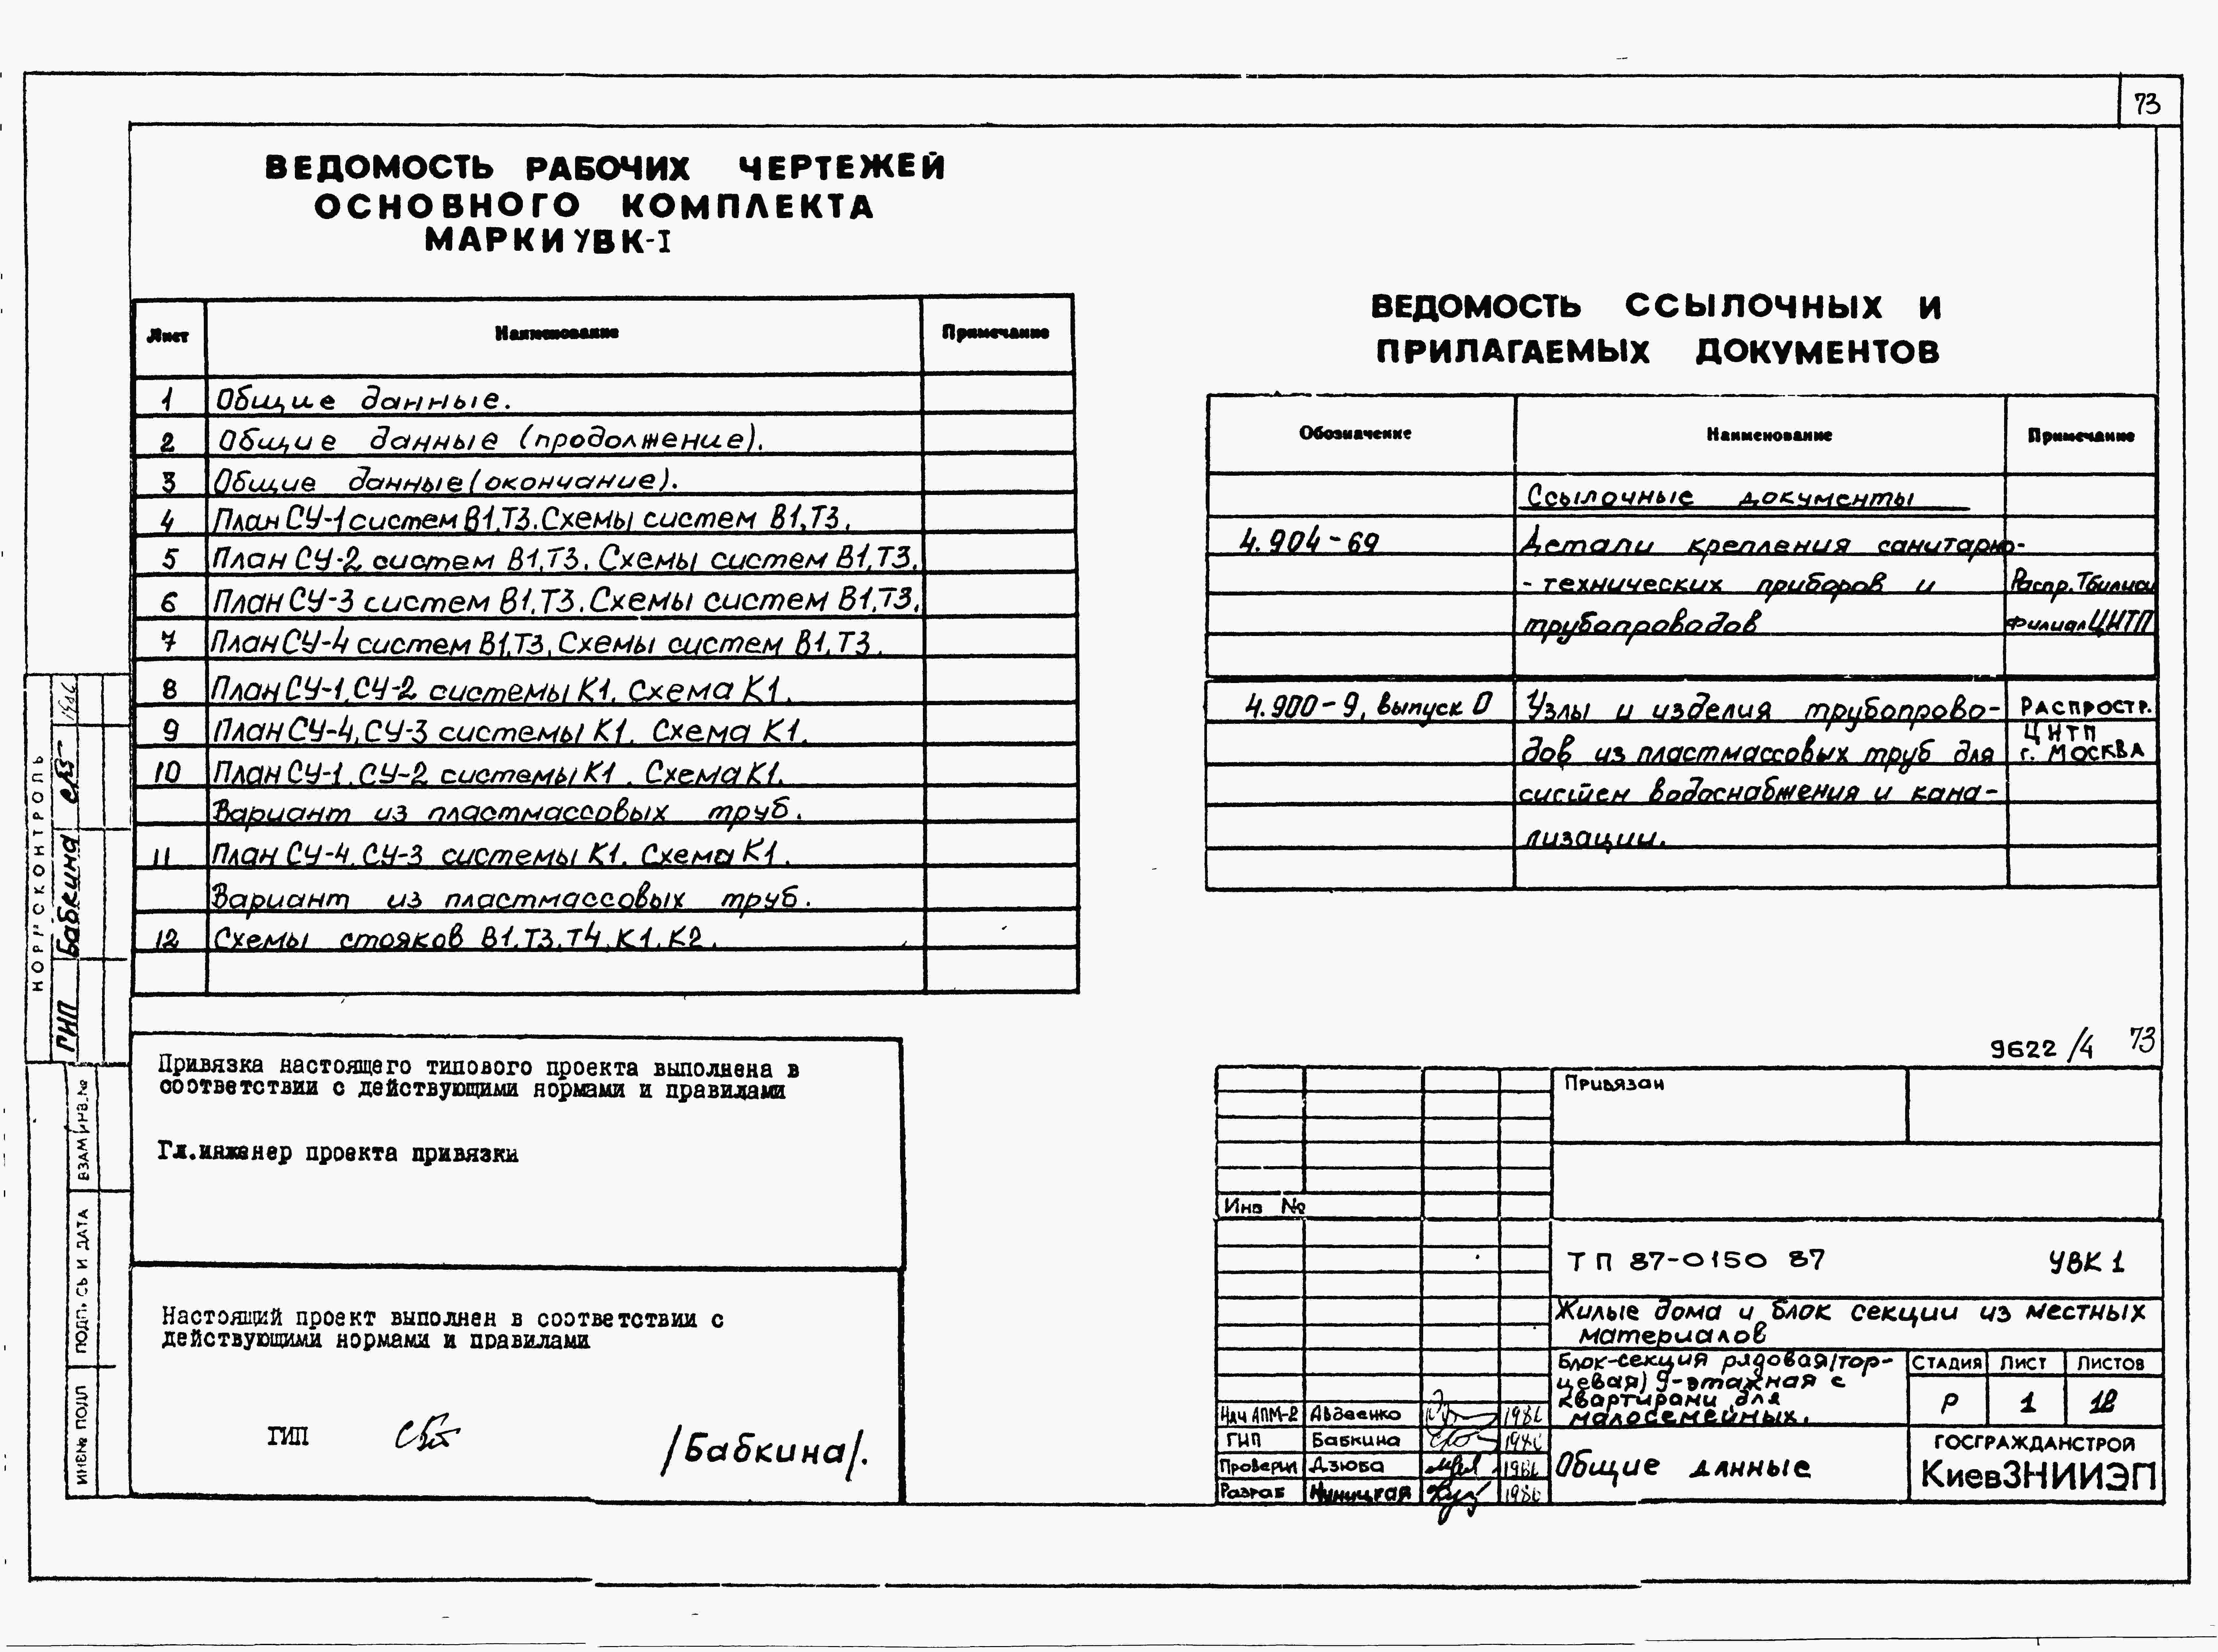 73
ВЕДОМОСТЬ РАБОЧИХ ЧЕРТЕЖЕЙ
ОСНОВНОГО КОМПЛЕКТА
МАРКИ УВК-I
Лист Наименование Примечание
1 Общие данные.
2 Общие данные (продолжение).
3 Общие данные (окончание).
4 План СУ-1 систем В1,Т3. Схемы систем В1,Т3.
5 План СУ-2 систем В1,Т3. Схемы систем В1,Т3.
6 План СУ-3 систем В1,Т3. Схемы систем В1,Т3.
7 План СУ-4 систем В1,Т3. Схемы систем В1,Т3.
8 План СУ-1, СУ-2 системы К1. Схема К1.
9 План СУ-4, СУ-3 системы К1. Схема К1.
10 План СУ-1, СУ-2 системы К1. Схема К1.
Вариант из пластмассовых труб.
11 План СУ-4, СУ-3 системы К1. Схема К1.
Вариант из пластмассовых труб.
12 Схемы стояков В1,Т3,Т4,К1,К2.
ВЕДОМОСТЬ ССЫЛОЧНЫХ И
ПРИЛАГАЕМЫХ ДОКУМЕНТОВ
Обозначение Наименование Примечание
Ссылочные документы
4.904-69 Детали крепления санитарно-
-технических приборов и Распр. Тбилиси
трубопроводов филиал ЦНТП
4.900-9, выпуск 0 Узлы и изделия трубопрово- РАСПРОСТР.
ЦНТП
дов из пластмассовых труб для г. МОСКВА
систем водоснабжения и кана-
лизации.
НОРМОКОНТРОЛЬ
ГИП Бабкина
ВЗАМ ИНВ.№
ПОДПИСЬ И ДАТА
ИНВ№ ПОДЛ
Привязка настоящего типового проекта выполнена в
соответствии с действующими нормами и правилами
Гл.инженер проекта привязки
Настоящий проект выполнен в соответствии с
действующими нормами и правилами
ГИП /Бабкина/.
9622/4 73
Привязан
Инв №
ТП 87-0150 87 УВК 1
Жилые дома и блок секции из местных
материалов
Блок-секция рядовая/тор-
цевая) 9-этажная с
квартирами для
малосемейных.
СТАДИЯ ЛИСТ ЛИСТОВ
Р 1 12
Нач АПМ-2 Авдеенко 1986
ГИП Бабкина 1986
Проверил Дзюба 1986
Разраб 1986
Общие данные
ГОСГРАЖДАНСТРОЙ
КиевЗНИИЭП